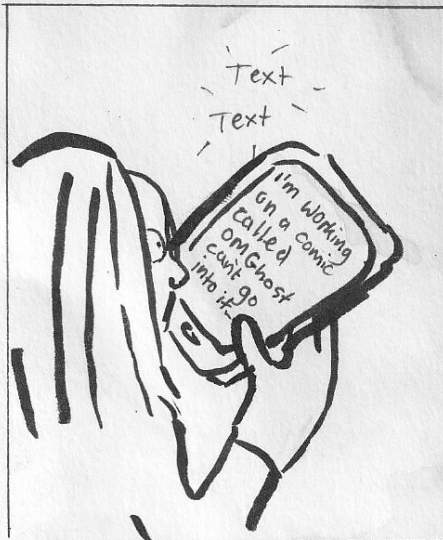 Text
Text
I'm working
on a comic
called
OMGhost
can't go
into it-